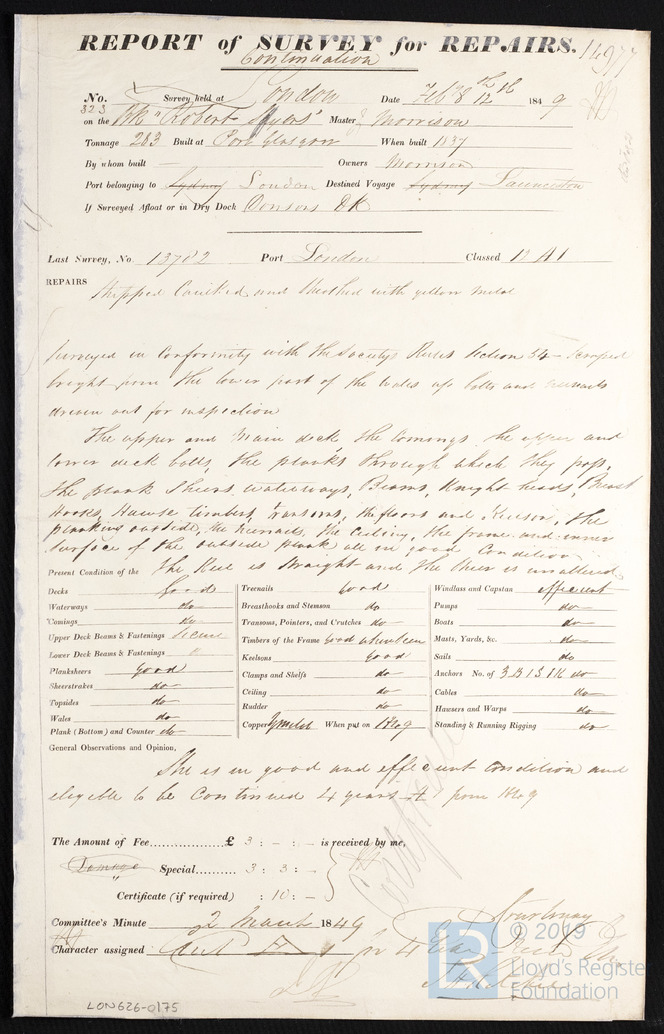 REPORT of SURVEY for REPAIRS. 14977
Continuation
No. 323 Survey held at London Date Feb 8th 12th 1849
on the Bk "Robert Syers" Master J Morrison
Tonnage 283 Built at Port Glasgow When built 1837
By whom built — Owners Morrison
Port belonging to Sydney London Destined Voyage Sydney Launceston
If Surveyed Afloat or in Dry Dock Dk
Last Survey, No. 13782 Port London Classed 12 A1
REPAIRS Stripped Caulked and Sheathed with yellow metal
Surveyed in Conformity with the Society's Rules Section 54 – Scraped
bright from the lower part of the wales up bolts and treenails
driven out for inspection
The upper and Main deck, the Comings, the upper and
lower deck bolts, the planks through which they pass,
the plank Sheers, waterways, Beams, Knight heads, Breast
Hooks, Hawse timbers, transoms, the floors and Keelson, the
planking outside, the treenails, the Ceiling, the frame and inner
surface of the outside plank all in good Condition
Present Condition of the The Keel is straight and the Sheer is unaltered
Decks Good
Waterways do
Comings do
Upper Deck Beams & Fastenings Secure
Lower Deck Beams & Fastenings
Planksheers good
Sheerstrakes do
Topsides do
Wales do
Plank (Bottom) and Counter do
Treenails Good
Breasthooks and Stemson do
Transoms, Pointers, and Crutches do
Timbers of the Frame Good where seen
Keelsons good
Clamps and Shelfs do
Ceiling do
Rudder do
Copper Y metal When put on 1849
Windlass and Capstan efficient
Pumps do
Boats do
Masts, Yards, &c. do
Sails do
Anchors No. of 3 B 1 S 1 K do
Cables do
Hawsers and Warps do
Standing & Running Rigging do
General Observations and Opinion,
She is in good and efficient condition and
eligible to be Continued 4 years A from 1849
The Amount of Fee............... £ 3 : – : – is received by me,
Damage Special.......... 3 : 3 : –
Certificate (if required) : 10 : –
Committee's Minute 2 March 1849
Character assigned for 4 Years
Courtenay
© 2019
Lloyd's Register
Foundation
LR
LON626-0175